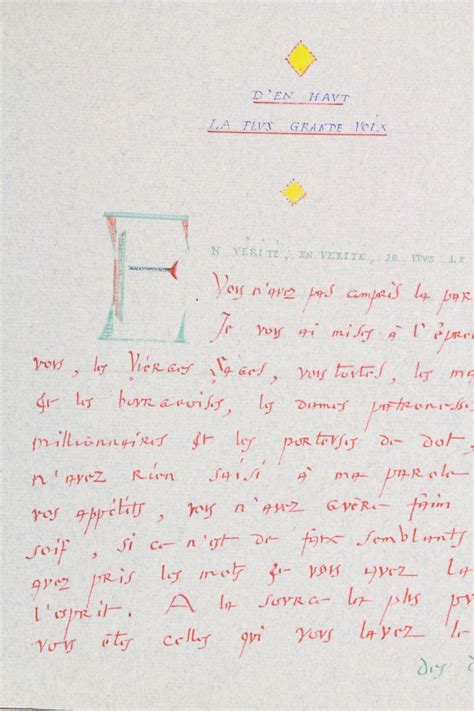 D'EN HAUT
LA PLUS GRANDE VOIX
EN VÉRITÉ, EN VÉRITÉ, JE VOUS LE
Vous n'avez pas compris la par
Je vous ai mises à l'épre
vous, les Vierges Sages, vous toutes, les ma
& les bourgeoises, les dames patronesse
millionnaires & les porteuses de dot,
n'avez rien saisi à ma parole
vos appétits, vous n'avez guère faim
soif, si ce n'est de faux semblants
avez pris les mots & vous avez la
l'esprit. A la source la plus pu
vous êtes celles qui vous lavez le
des d